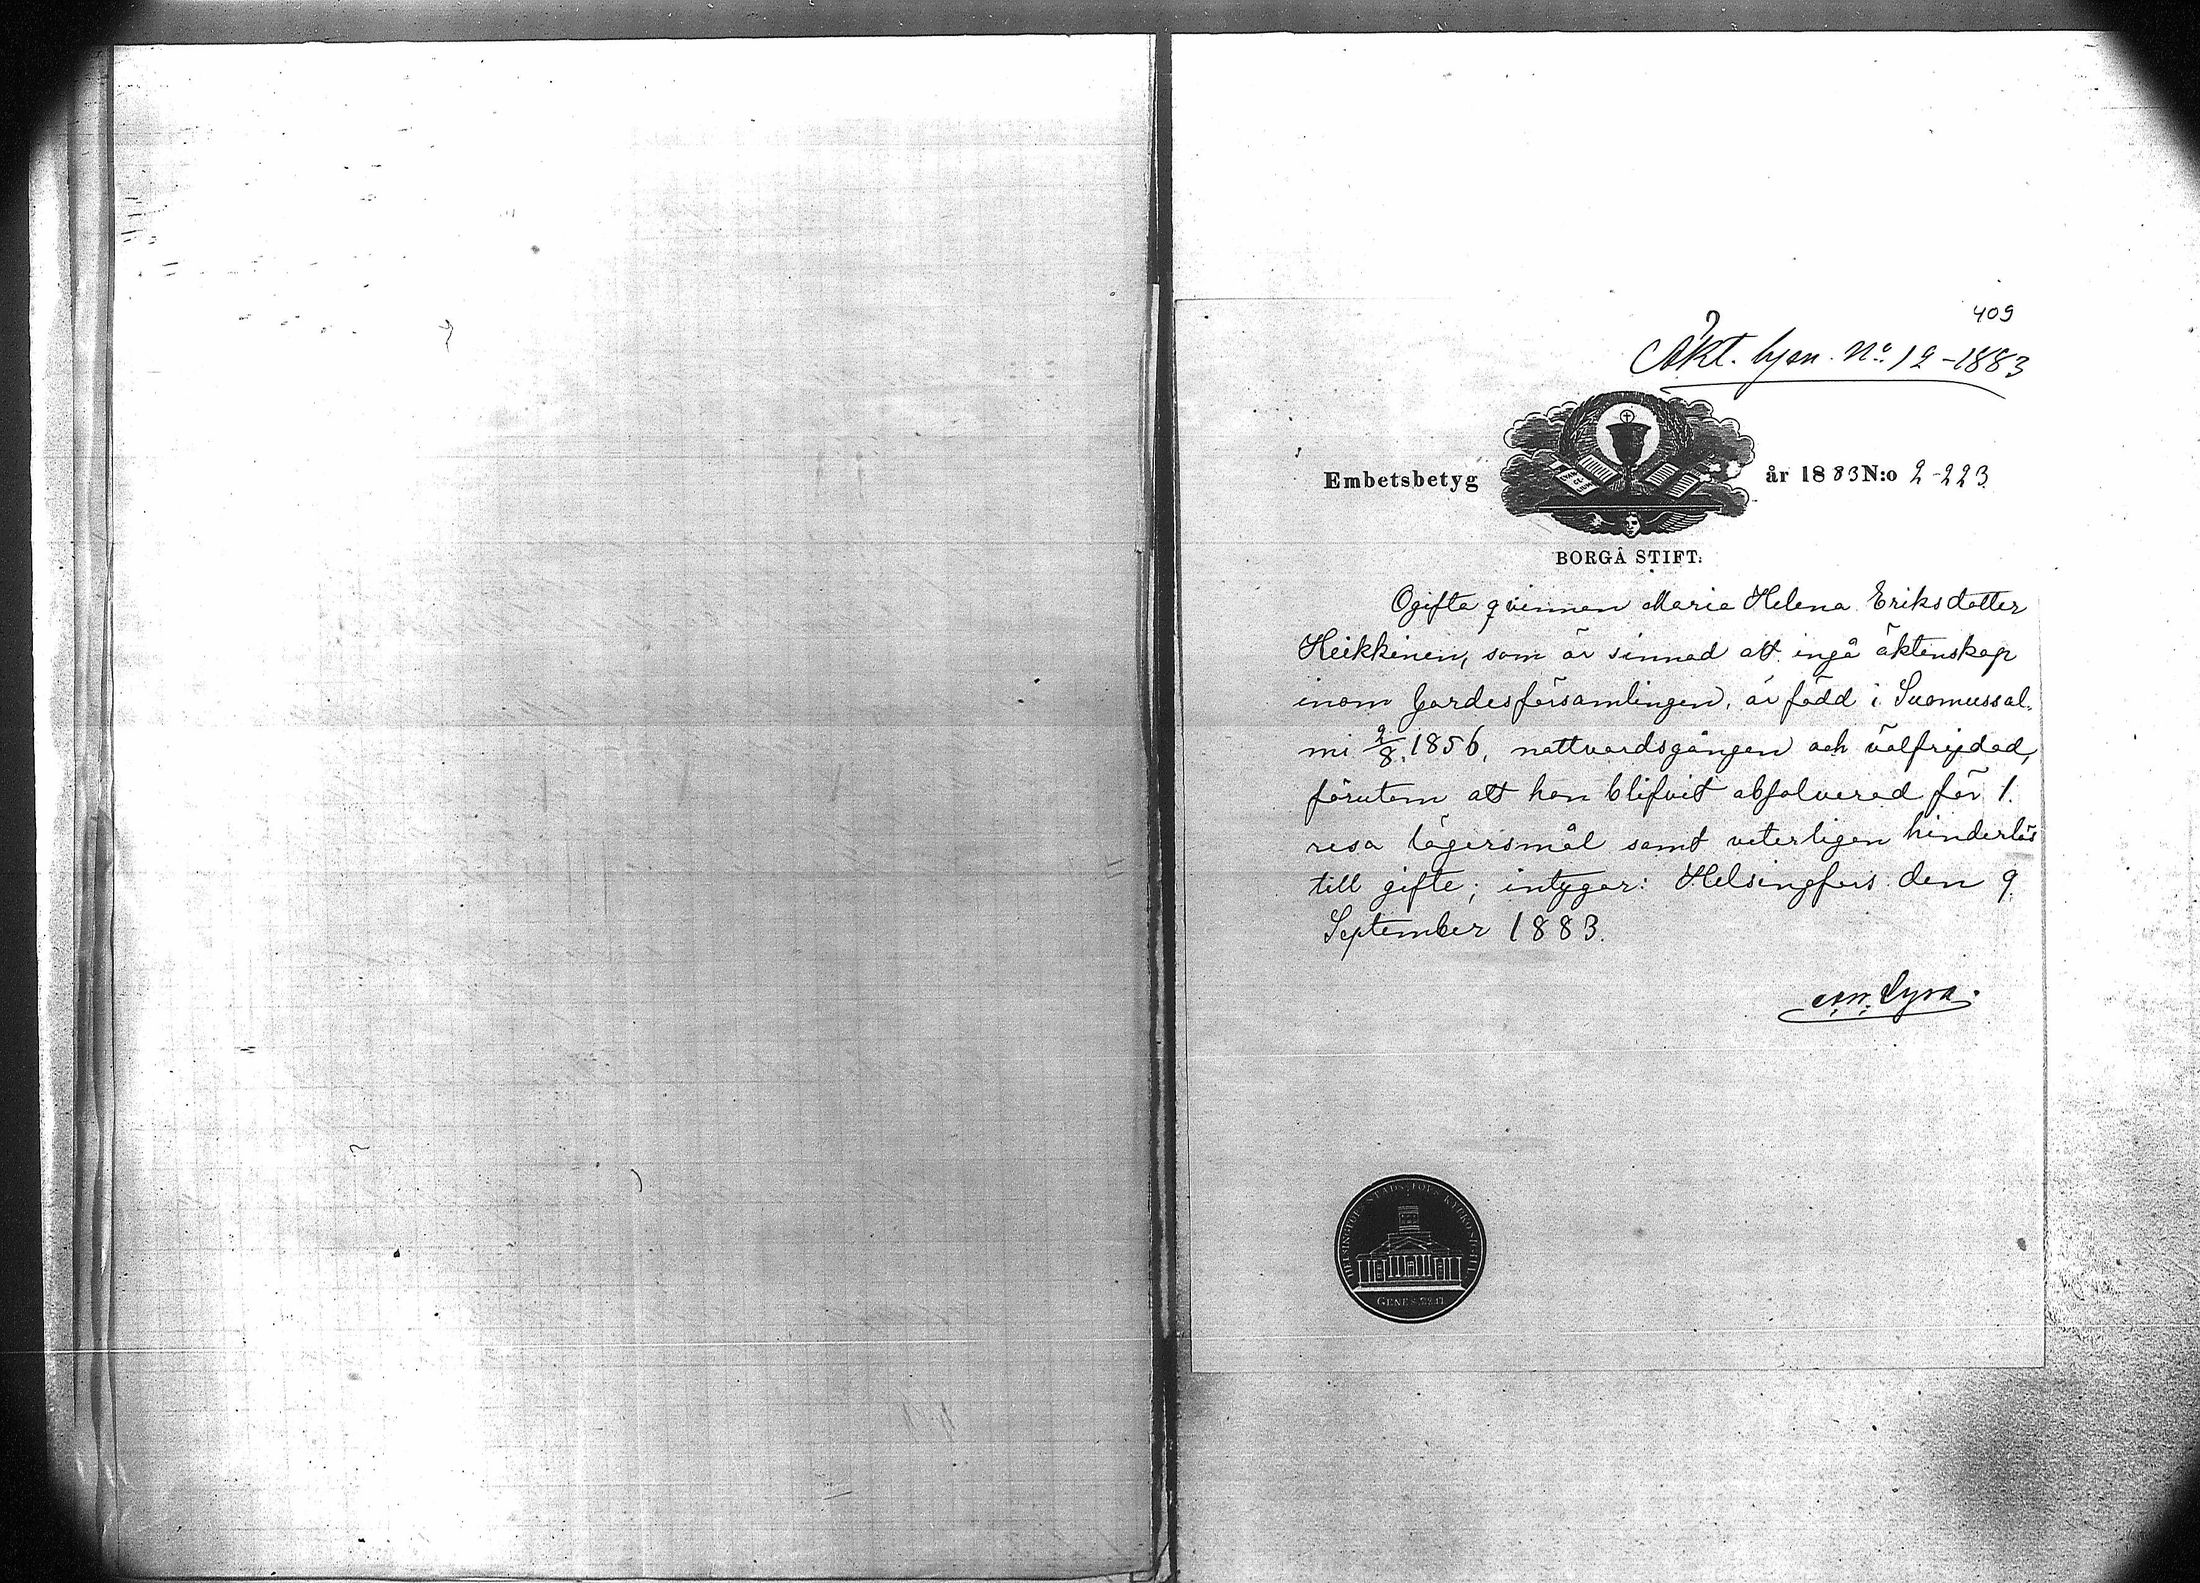 409
Äkt. lysn. No: 12-1883
Embetsbetyg år 1883 N:o 2-223.
BORGÅ STIFT.
Ogifta qvinnan Maria Helena Eriksdotter
Heikkinen, som är sinnad att ingå äktenskap
inom Gardesförsamlingen, är född i Suomussal-
mi 2/8. 1856, nattvardsgången och välfrejdad,
förutom att hon blifvit absolverad för 1.
resa lägersmål samt veterligen hinderlös
till gifte; intygar: Helsingfors den 9.
September 1883.
Lyra.
HELSINGFORS STADS FÖRS. KYRKO SIGILL
GENES.